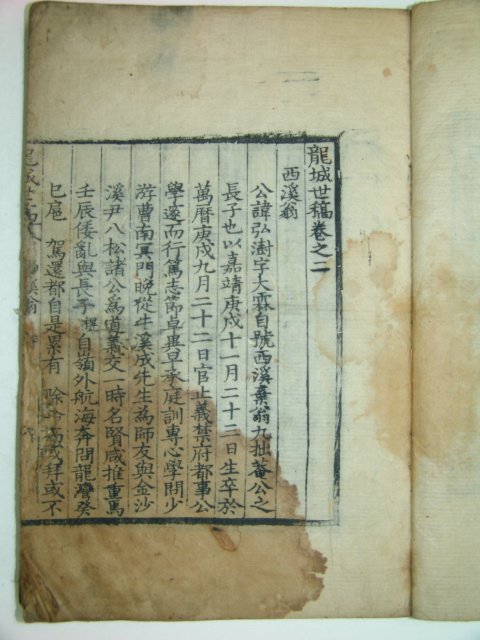 龍城世稿卷之二
西溪翁
公諱弘澍字大霖自號西溪棄翁九拙菴公之
長子也以嘉靖庚戌十一月二十二日生卒於
萬曆庚戌九月二十二日官止義禁府都事公
學邃而行篤志節卓異早承庭訓專心學問少
游曹南冥門晚從牛溪成先生為師友與金沙
溪尹八松諸公爲道義交一時名賢咸推重焉
壬辰倭亂與長子 自嶺外航海奔問龍灣癸
巳扈 駕還都自是累有 除命而或拜或不
龍城世稿 西溪翁